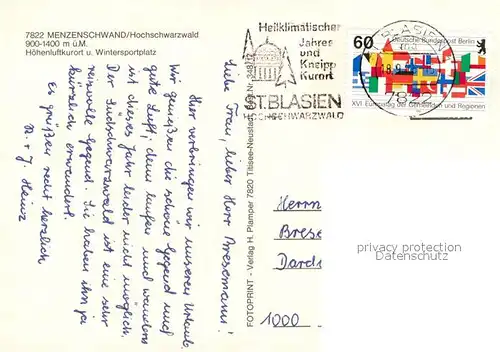 7822 MENZENSCHWAND/Hochschwarzwald
900-1400 m ü.M.
Höhenluftkurort u. Wintersportplatz
Liebe Frau, lieber Herr Bresemann!
Hier verbringen wir unseren Urlaub.
Wir genießen die schöne Gegend und
gute Luft; denn laufen und wandern
ist dieses Jahr leider nicht möglich.
Der Südschwarzwald ist eine sehr
reizvolle Gegend. Sie haben ihn ja
kürzlich erwandert.
Es grüßen recht herzlich
J. Heinz
FOTOPRINT - Verlag H. Plamper 7820 Titisee-Neustadt
Heilklimatischer
Jahres
und
Kneipp
Kurort
ST.BLASIEN
HOCHSCHWARZWALD
ST. BLASIEN
7822
60
Deutsche Bundespost Berlin
XVI. Europatag der Gemeinden und Regionen
privacy protection
Datenschutz
Herrn
Brese
Dard
1000